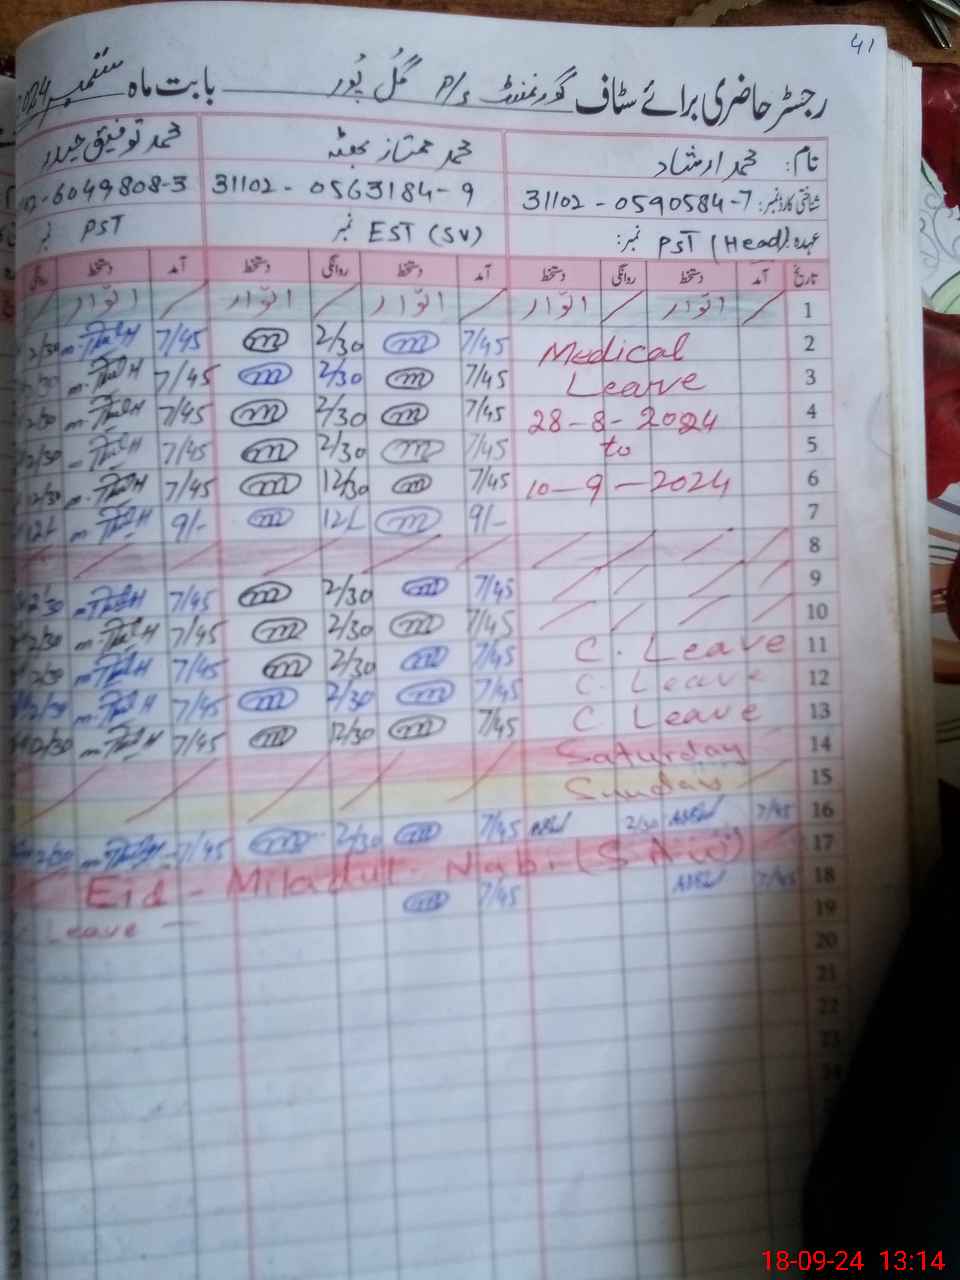 41
رجسٹر حاضری برائے سٹاف گورنمنٹ P/S گُل پُور بابت ماہ ستمبر 2024
نام: محمد ارشاد محمد ممتاز بھٹہ محمد توفیق حیدر
شناختی کارڈ نمبر: 31102-0590584-7 31102-0563184-9 02-6049808-3
عہدہ: PST (Head) نمبر: EST (SV) نمبر PST نمبر
تاریخ آمد دستخط روانگی دستخط آمد دستخط روانگی دستخط آمد دستخط روانگی
1 / اتوار / اتوار / اتوار / اتوار / اتوار
2 Medical 7/45 m 2/30 m 7/45 2/30
3 Leave 7/45 m 2/30 m 7/45 2/30
4 28-8-2024 7/45 m 2/30 m 7/45 2/30
5 to 7/45 m 2/30 m 7/45 2/30
6 10-9-2024 7/45 m 12/30 m 7/45 12/30
7 9/- m 12/- m 9/- 12/-
8
9 7/45 m 2/30 m 7/45 2/30
10 7/45 m 2/30 m 7/45 2/30
11 C. Leave 7/45 m 2/30 m 7/45 2/30
12 C. Leave 7/45 m 2/30 m 7/45 2/30
13 C Leave 7/45 m 12/30 m 7/45 12/30
14 Saturday
15 Sunday
16 7/45 2/30 7/45 m 2/30 m 7/45 2/30
17 Eid - Miladul. Nabi (S.A.W)
18 7/45 7/45 m Leave
19
20
21
22
23
24
18-09-24 13:14